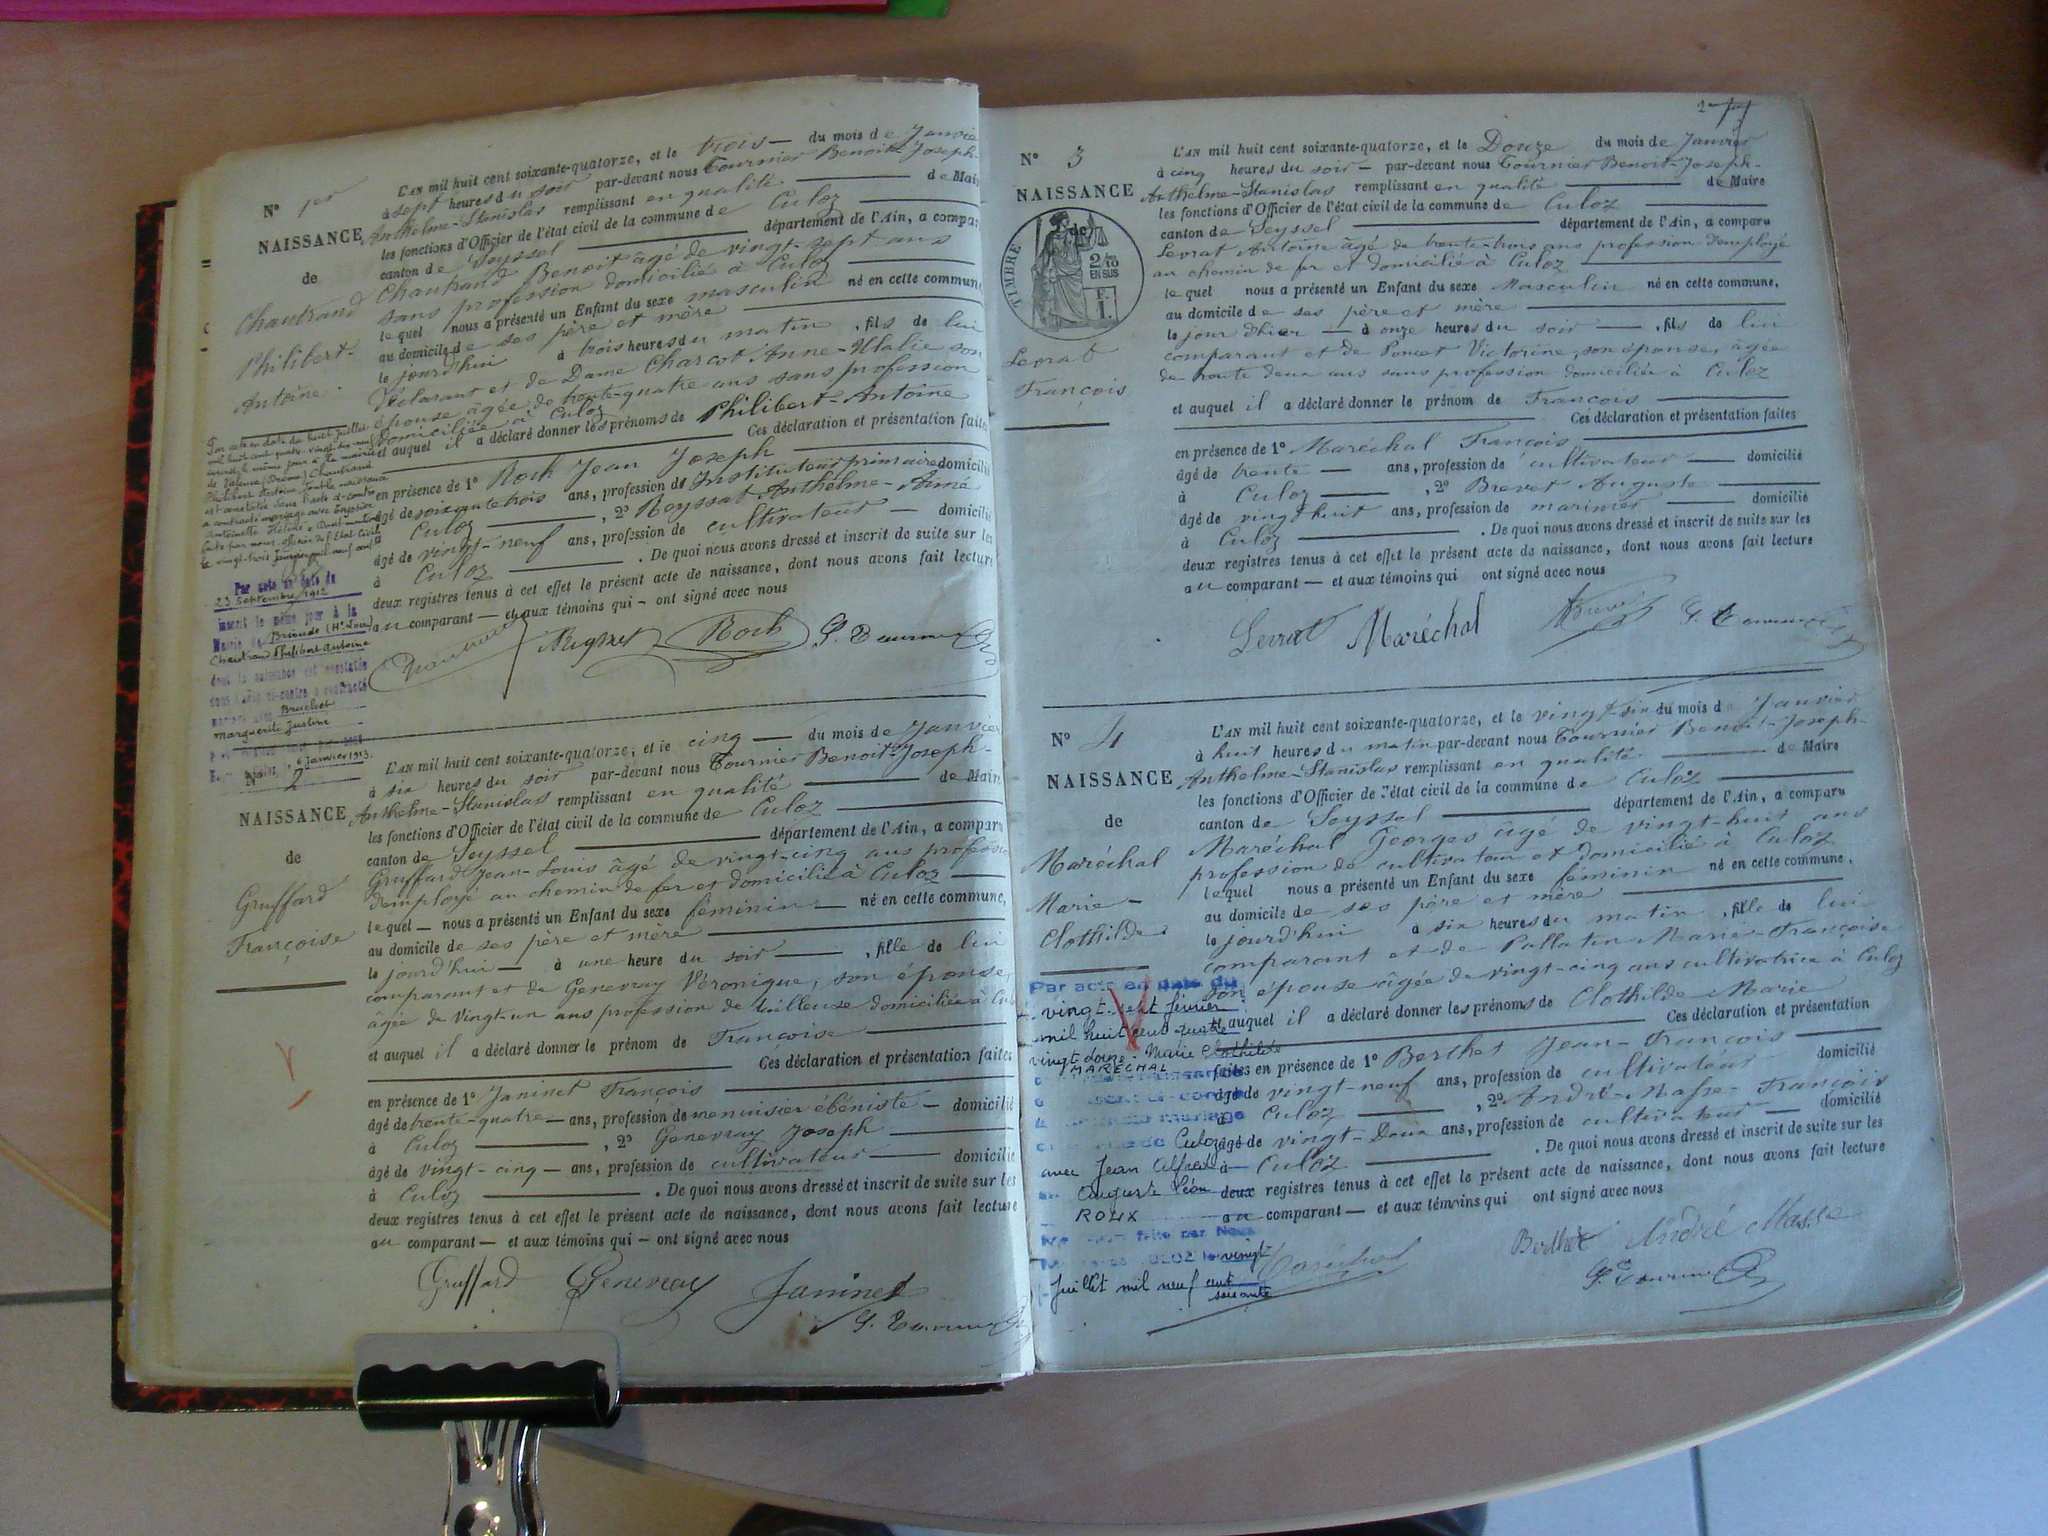 N° 1er
NAISSANCE
de
Chautrand
Philibert-
Antoine
L'AN mil huit cent soixante-quatorze, et le trois — du mois de Janvier
à sept heures du soir par-devant nous Tournier Benoit-Joseph-
Anthelme-Stanislas remplissant en qualité — de Maire
les fonctions d'Officier de l'état civil de la commune de Culoz
canton de Seyssel — département de l'Ain, a comparu
Chautrand Benoit âgé de vingt-sept ans
sans profession domicilié à Culoz
lequel nous a présenté un Enfant du sexe masculin né en cette commune,
au domicile de ses père et mère
le jourd'hui à trois heures du matin, fils de lui
déclarant et de Dame Charcot Anne-Ulalie son
épouse âgée de trente-quatre ans sans profession
domiciliée à Culoz
et auquel il a déclaré donner les prénoms de Philibert-Antoine
Ces déclaration et présentation faites
en présence de 1° Roch Jean Joseph
âgé de soixante trois ans, profession d'Instituteur primaire domicilié
à Culoz —, 2° Reyssat Anthelme-Aimé
âgé de vingt-neuf ans, profession de cultivateur — domicilié
à Culoz — . De quoi nous avons dressé et inscrit de suite sur les
deux registres tenus à cet effet le présent acte de naissance, dont nous avons fait lecture
au comparant — et aux témoins qui — ont signé avec nous
Roch
Par acte en date du
23 Septembre 1912
inscrit le même jour à la
Mairie de Brioude (Hte Loire)
Chautrand Philibert Antoine
dont la naissance est constatée
dans l'acte ci-contre a contracté
mariage avec Bruchet
Marguerite Justine
6 Janvier 1913.
N° 2
NAISSANCE
de
Gruffard
Françoise
L'AN mil huit cent soixante-quatorze, et le cinq — du mois de Janvier
à six heures du soir par-devant nous Tournier Benoit-Joseph-
Anthelme-Stanislas remplissant en qualité — de Maire
les fonctions d'Officier de l'état civil de la commune de Culoz
canton de Seyssel — département de l'Ain, a comparu
Gruffard Jean-Louis âgé de vingt-cinq ans profession
d'employé au chemin de fer et domicilié à Culoz
lequel — nous a présenté un Enfant du sexe féminin — né en cette commune,
au domicile de ses père et mère
le jourd'hui — à une heure du soir —, fille de lui
comparant et de Genevray Véronique, son épouse,
âgée de vingt-un ans profession de tailleuse domiciliée à Culoz
et auquel il a déclaré donner le prénom de Françoise
Ces déclaration et présentation faites
en présence de 1° Janinet François
âgé de trente-quatre — ans, profession de menuisier ébéniste — domicilié
à Culoz —, 2° Genevray Joseph
âgé de vingt-cinq — ans, profession de cultivateur — domicilié
à Culoz — . De quoi nous avons dressé et inscrit de suite sur les
deux registres tenus à cet effet le présent acte de naissance, dont nous avons fait lecture
au comparant — et aux témoins qui — ont signé avec nous
Gruffard Genevray Janinet
2
N° 3
NAISSANCE
de
TIMBRE
2/10
EN SUS
F. 1.
Levrat
François
L'AN mil huit cent soixante-quatorze, et le Douze du mois de Janvier
à cinq heures du soir — par-devant nous Tournier Benoit-Joseph-
Anthelme-Stanislas remplissant en qualité — de Maire
les fonctions d'Officier de l'état civil de la commune de Culoz
canton de Seyssel — département de l'Ain, a comparu
Levrat Antoine âgé de trente-trois ans profession d'employé
au chemin de fer et domicilié à Culoz
lequel nous a présenté un Enfant du sexe Masculin né en cette commune,
au domicile de ses père et mère
le jour d'hier — à onze heures du soir —, fils de lui
comparant et de Poncet Victorine, son épouse, âgée
de trente deux ans sans profession domiciliée à Culoz
et auquel il a déclaré donner le prénom de François
Ces déclaration et présentation faites
en présence de 1° Maréchal François
âgé de trente — ans, profession de cultivateur — domicilié
à Culoz —, 2° Brevet Auguste
âgé de vingt huit ans, profession de marinier — domicilié
à Culoz — . De quoi nous avons dressé et inscrit de suite sur les
deux registres tenus à cet effet le présent acte de naissance, dont nous avons fait lecture
au comparant — et aux témoins qui ont signé avec nous
Levrat Maréchal
N° 4
NAISSANCE
de
Maréchal
Marie-
Clothilde
L'AN mil huit cent soixante-quatorze, et le vingt-six du mois de Janvier
à huit heures du matin par-devant nous Tournier Benoit-Joseph-
Anthelme-Stanislas remplissant en qualité — de Maire
les fonctions d'Officier de l'état civil de la commune de Culoz
canton de Seyssel — département de l'Ain, a comparu
Maréchal Georges âgé de vingt-huit ans
profession de cultivateur et domicilié à Culoz
lequel nous a présenté un Enfant du sexe féminin né en cette commune,
au domicile de ses père et mère
le jourd'hui à six heures du matin, fille de lui
comparant et de Pallatin Marie-Françoise
son épouse âgée de vingt-cinq ans cultivatrice à Culoz
et auquel il a déclaré donner les prénoms de Clothilde Marie
Ces déclaration et présentation
faites en présence de 1° Berthet Jean-François
âgé de vingt-neuf ans, profession de cultivateur domicilié
à Culoz —, 2° André-Masse-François
âgé de vingt-Deux ans, profession de cultivateur — domicilié
à Culoz — . De quoi nous avons dressé et inscrit de suite sur les
deux registres tenus à cet effet le présent acte de naissance, dont nous avons fait lecture
au comparant — et aux témoins qui ont signé avec nous
Berthet André Masse
Maréchal
Par acte en date du
vingt-sept février
mil huit cent quatre
vingt douze Marie Clothilde
MARÉCHAL
mariage
Culoz
avec Jean Alfred
Auguste Léon
ROUX
faite par Nous
le vingt
Juillet mil neuf cent
soixante